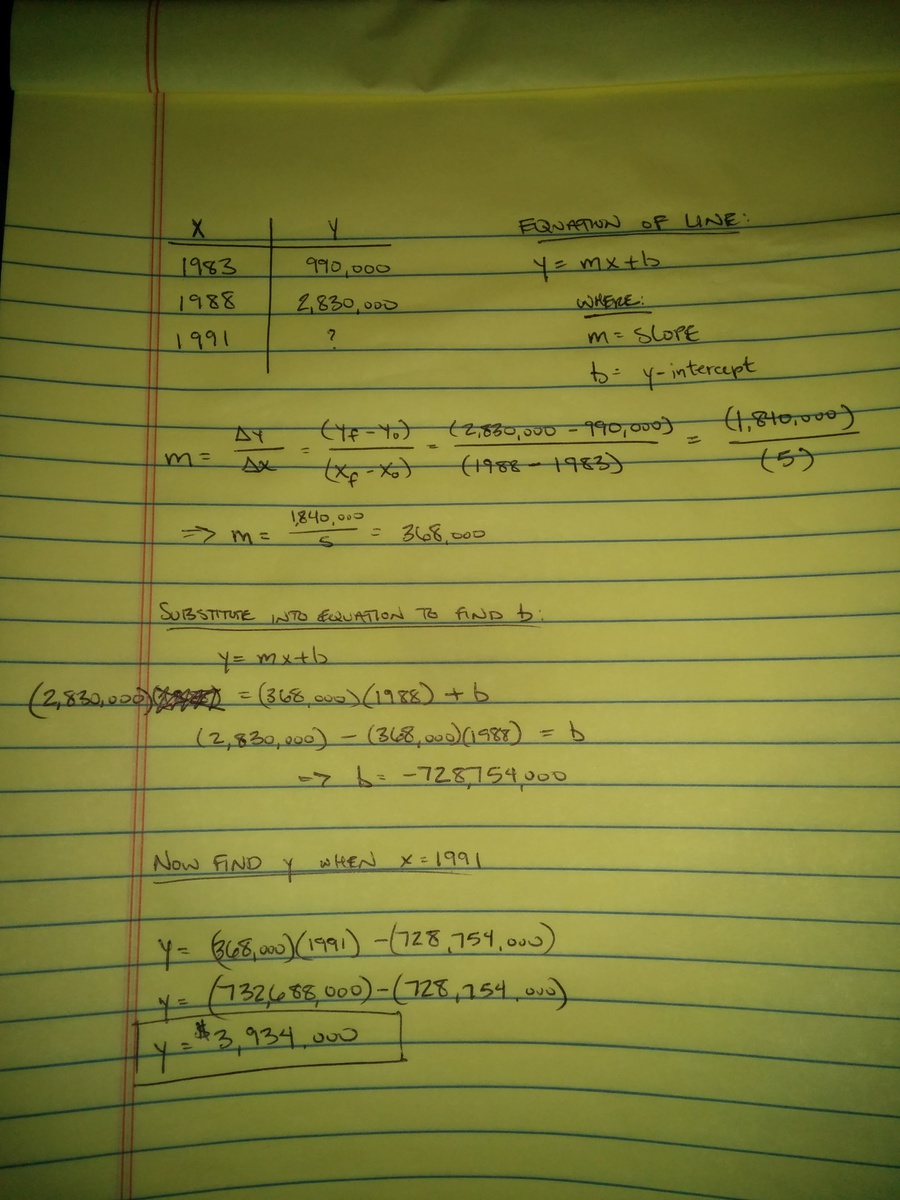 X Y
1983 990,000
1988 2,830,000
1991 ?
EQUATION OF LINE:
y = mx+b
WHERE:
m = SLOPE
b = y-intercept
m = ΔY/ΔX = (Yf - Y₀)/(Xf - X₀) = (2,830,000 - 990,000)/(1988 - 1983) = (1,840,000)/(5)
=> m = 1,840,000/5 = 368,000
SUBSTITUTE INTO EQUATION TO FIND b:
y = mx+b
(2,830,000) = (368,000)(1988) + b
(2,830,000) - (368,000)(1988) = b
=> b = -728,754,000
NOW FIND y WHEN x = 1991
y = (368,000)(1991) - (728,754,000)
y = (732,688,000) - (728,754,000)
y = $3,934,000